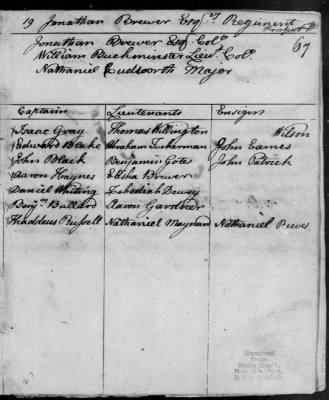 19 Jonathan Brewer Esqr.s Regiment Prospect H
67
Jonathan Brewer Esqr. Colo.
William Buckminster Lieut. Colo.
Nathaniel Cudsworth Major
Captains Lieutenants Ensigns
Isaac Gray Thomas Willington Wilson
Edward Blake Abraham Tuckerman John Eames
John Black Benjamin Gates John Patrick
Aaron Haynes Elisha Brewer
Daniel Whiting Zebediah Dewey
Benjn. Bullard Aaron Gardner
Thaddeus Russell Nathaniel Maynard Nathaniel Reeves
Received
from
State Dept.